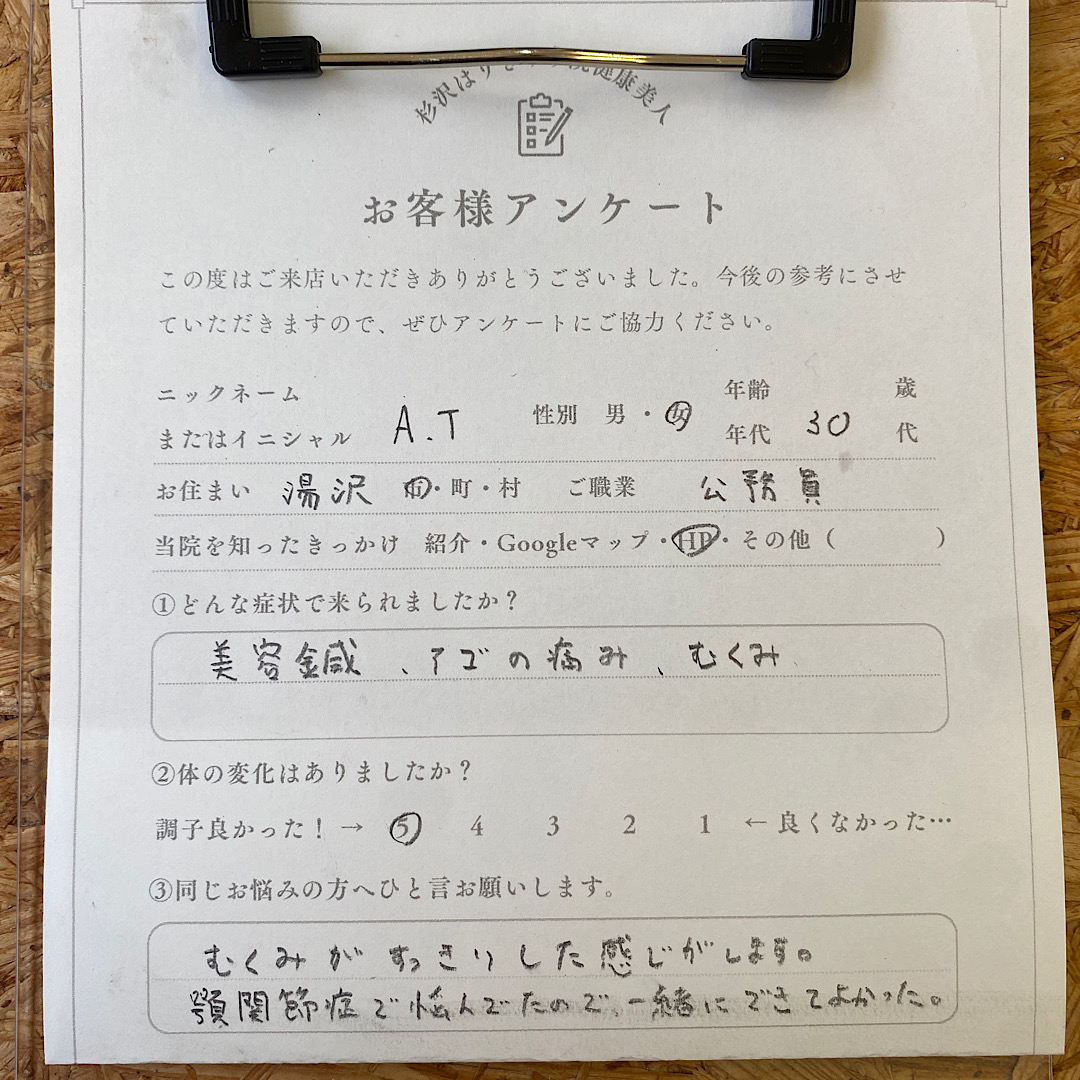 杉沢はり 院健康美人
お客様アンケート
この度はご来店いただきありがとうございました。今後の参考にさせ
ていただきますので、ぜひアンケートにご協力ください。
ニックネーム
またはイニシャル A.T 性別 男・女 年齢 歳
年代 30 代
お住まい 湯沢 市・町・村 ご職業 公務員
当院を知ったきっかけ 紹介・Googleマップ・HP・その他( )
①どんな症状で来られましたか?
美容鍼、アゴの痛み、むくみ
②体の変化はありましたか?
調子良かった!→ 5 4 3 2 1 ←良くなかった…
③同じお悩みの方へひと言お願いします。
むくみがすっきりした感じがします。
顎関節症で悩んでたので、一緒にできてよかった。